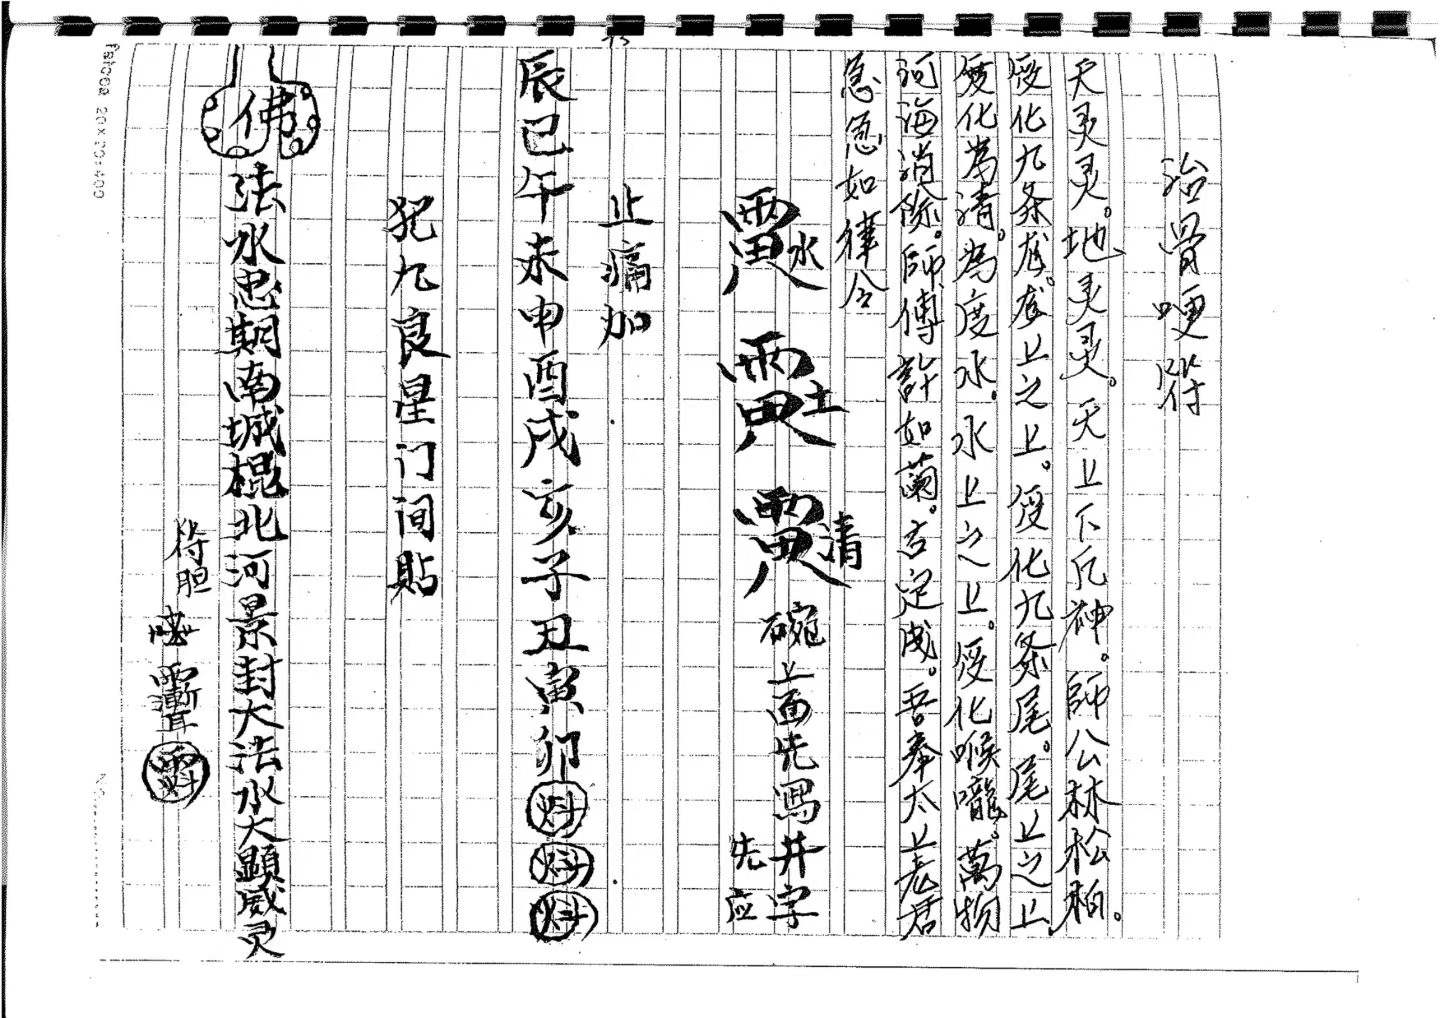 治骨哽符
天灵灵。地灵灵。天上下凡神。師公林松柏。
变化九条龙。龙上之上。变化九条尾。尾上之上
变化為清。為度水。水上之上。变化喉嚨。萬物
河海消除。師傅許如蘭。言定成。吾奉太上老君
急急如律令
水 土 清
碗上面先寫井字
先应
止痛加
辰巳午未申酉戌亥子丑寅卯
犯九良星门间貼
佛法水思期南城棍北河景封大法水大顯威灵
符胆